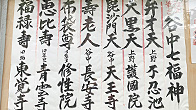 谷中七福神
弁才天 上野 不忍池
大黒天 上野 護國院
毘沙門天 谷中 天王寺
寿老人 谷中 長安寺
布袋尊 修性院
恵比寿 青雲寺
福禄寿 東覚寺